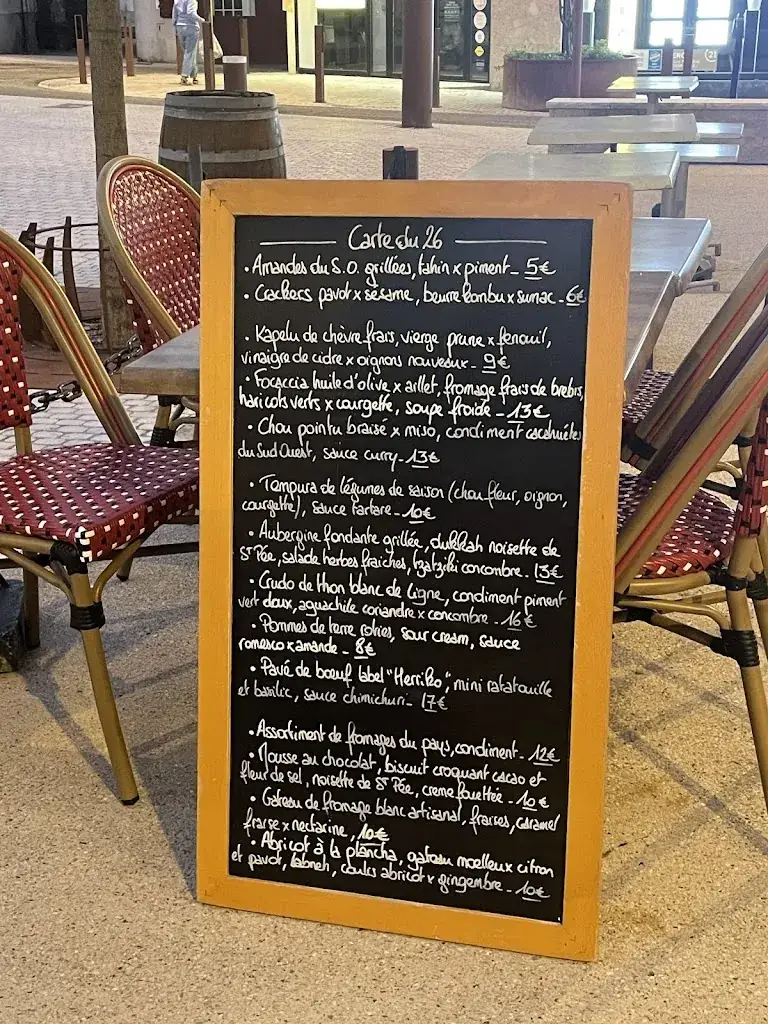 Carte du 26
• Amandes du S.O. grillées, tahin x piment_ 5€
• Crackers pavot x sésame, beurre kombu x sumac_ 6€
• Kapelu de chèvre frais, vierge prune x fenouil,
vinaigre de cidre x oignons nouveaux_ 9€
• Focaccia huile d'olive x aillet, fromage frais de brebis,
haricots verts x courgette, soupe froide_ 13€
• Chou pointu braisé x miso, condiment cacahuètes
du Sud Ouest, sauce curry_ 13€
• Tempura de légumes de saison (chou fleur, oignon,
courgette), sauce tartare_ 10€
• Aubergine fondante grillée, dukkah noisette de
St Pée, salade herbes fraiches, tzatziki concombre_ 13€
• Crudo de thon blanc de ligne, condiment piment
vert doux, aguachile coriandre x concombre_ 16€
• Pommes de terre rôties, sour cream, sauce
romesco x amande_ 8€
• Pavé de boeuf label "Herriko", mini ratatouille
et basilic, sauce chimichuri_ 17€
• Assortiment de fromages du pays, condiment_ 12€
• Mousse au chocolat, biscuit croquant cacao et
fleur de sel, noisette de St Pée, creme fouettée_ 10€
• Gateau de fromage blanc artisanal, fraises, caramel
fraise x nectarine, 10€
• Abricot à la plancha, gateau moelleux citron
et pavot, labneh, coulis abricot x gingembre_ 10€